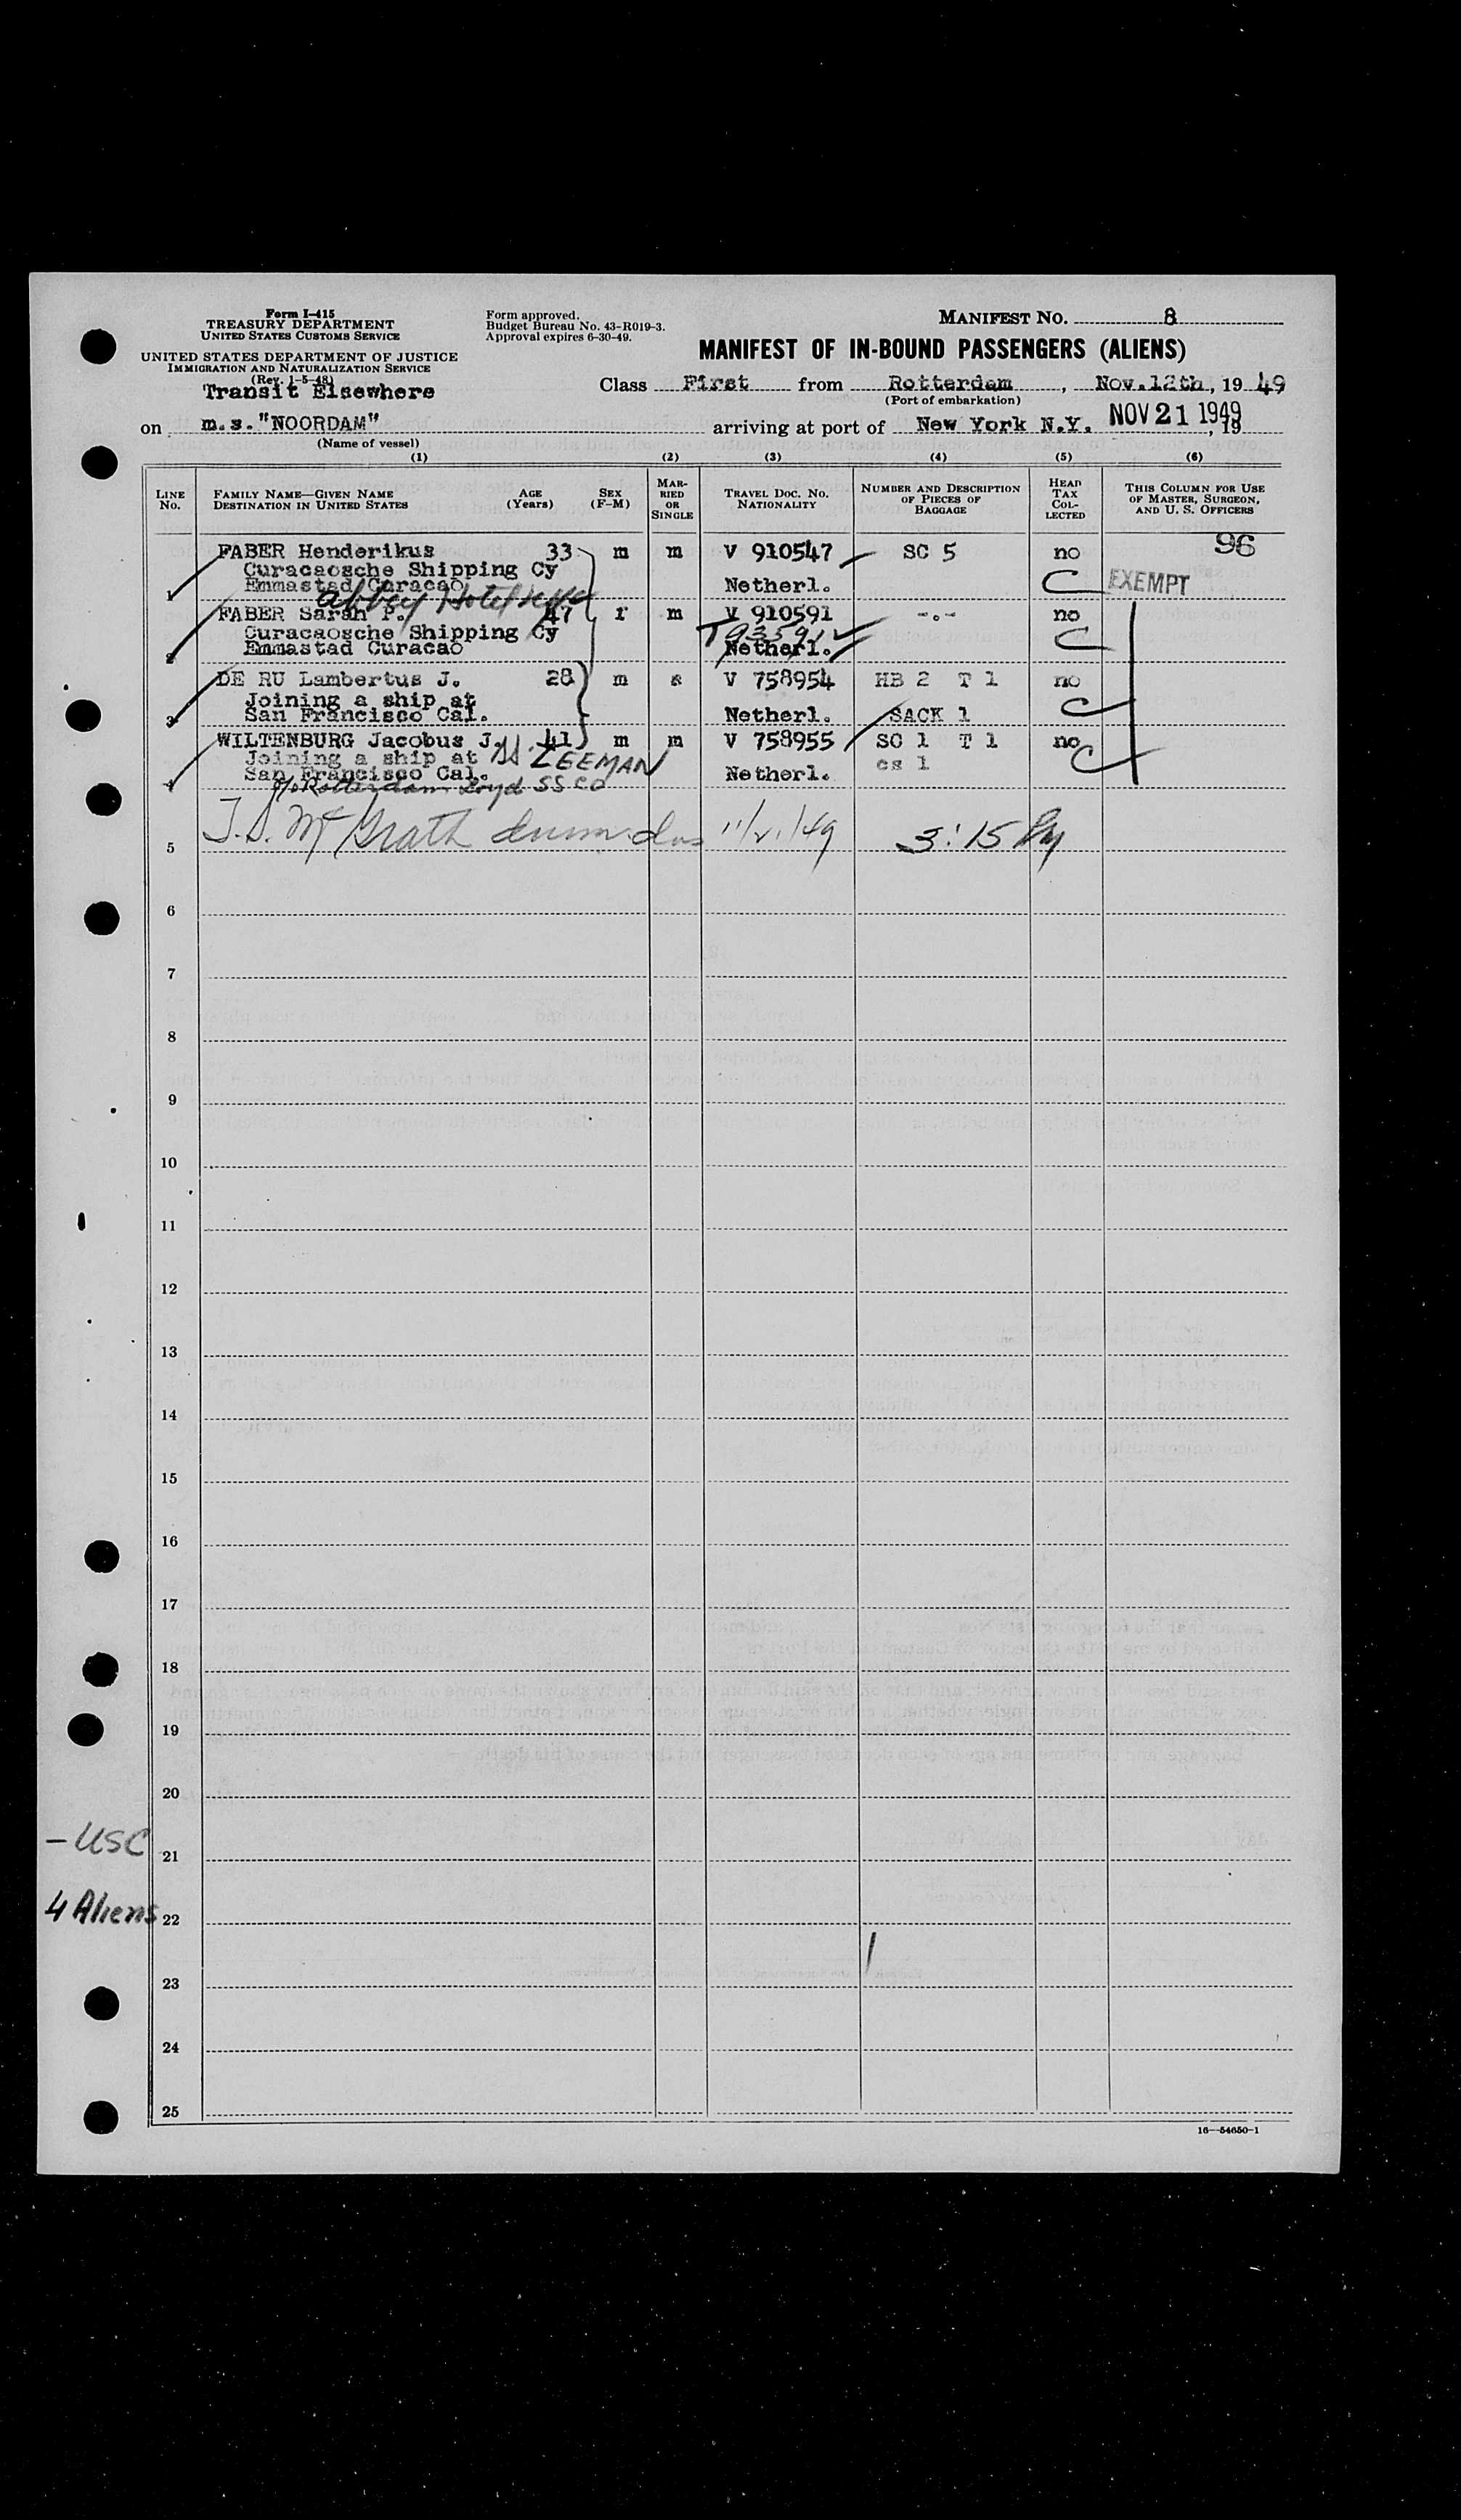 Form I-415
TREASURY DEPARTMENT
UNITED STATES CUSTOMS SERVICE
UNITED STATES DEPARTMENT OF JUSTICE
IMMIGRATION AND NATURALIZATION SERVICE
(Rev. 1-5-48)
Transit Elsewhere
Form approved.
Budget Bureau No. 43-R019-3.
Approval expires 6-30-49.
MANIFEST NO. 8
MANIFEST OF IN-BOUND PASSENGERS (ALIENS)
Class First from Rotterdam, Nov.12th, 19 49
(Port of embarkation)
on m.s."NOORDAM" arriving at port of New York N.Y. NOV 21 1949, 19
(Name of vessel)
(1) (2) (3) (4) (5) (6)
LINE No. FAMILY NAME—GIVEN NAME DESTINATION IN UNITED STATES AGE (Years) SEX (F-M) MARRIED OR SINGLE TRAVEL DOC. NO. NATIONALITY NUMBER AND DESCRIPTION OF PIECES OF BAGGAGE HEAD TAX COLLECTED THIS COLUMN FOR USE OF MASTER, SURGEON, AND U. S. OFFICERS
FABER Henderikus 33 m m V 910547 SC 5 no 96
Curacaosche Shipping Cy
1 Emmastad Curacao Netherl. C EXEMPT
Abbey Hotel
FABER Sarah P. 47 f m V 910591 -.- no
Curacaosche Shipping Cy
2 Emmastad Curacao Netherl. C
DE RU Lambertus J. 28 m s V 758954 HB 2 T 1 no
Joining a ship at
3 San Francisco Cal. Netherl. SACK 1 C
WILTENBURG Jacobus J. 41 m m V 758955 SC 1 T 1 no
Joining a ship at SS ZEEMAN cs 1 C
4 San Francisco Cal. Netherl.
c/o Rotterdam Loyd SS Co
5 11/21/49 3:15 PM
6
7
8
9
10
11
12
13
14
15
16
17
18
19
20
- USC
21
4 Aliens 22
23
24
25
16—54650-1